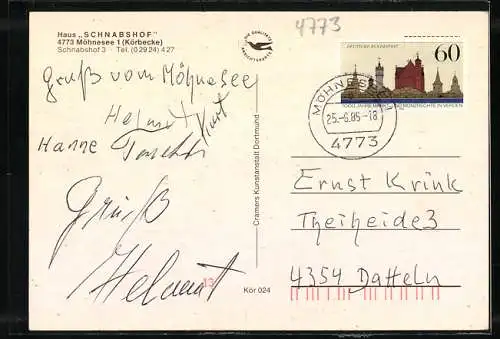 Haus „SCHNABSHOF"
4773 Möhnesee 1 (Körbecke)
Schnabshof 3 · Tel. (0 29 24) 4 27
4773
DEUTSCHE BUNDESPOST
60
1000 JAHRE MARKT- UND MÜNZRECHTE IN VERDEN
MÖHNESEE
25.-6.85-18
4773
Gruß vom Möhnesee
Helmut
Hanne
Gruß
Helmut
Cramers Kunstanstalt Dortmund
Kör 024
13
Ernst Krink
Theiheide 3
4354 Datteln